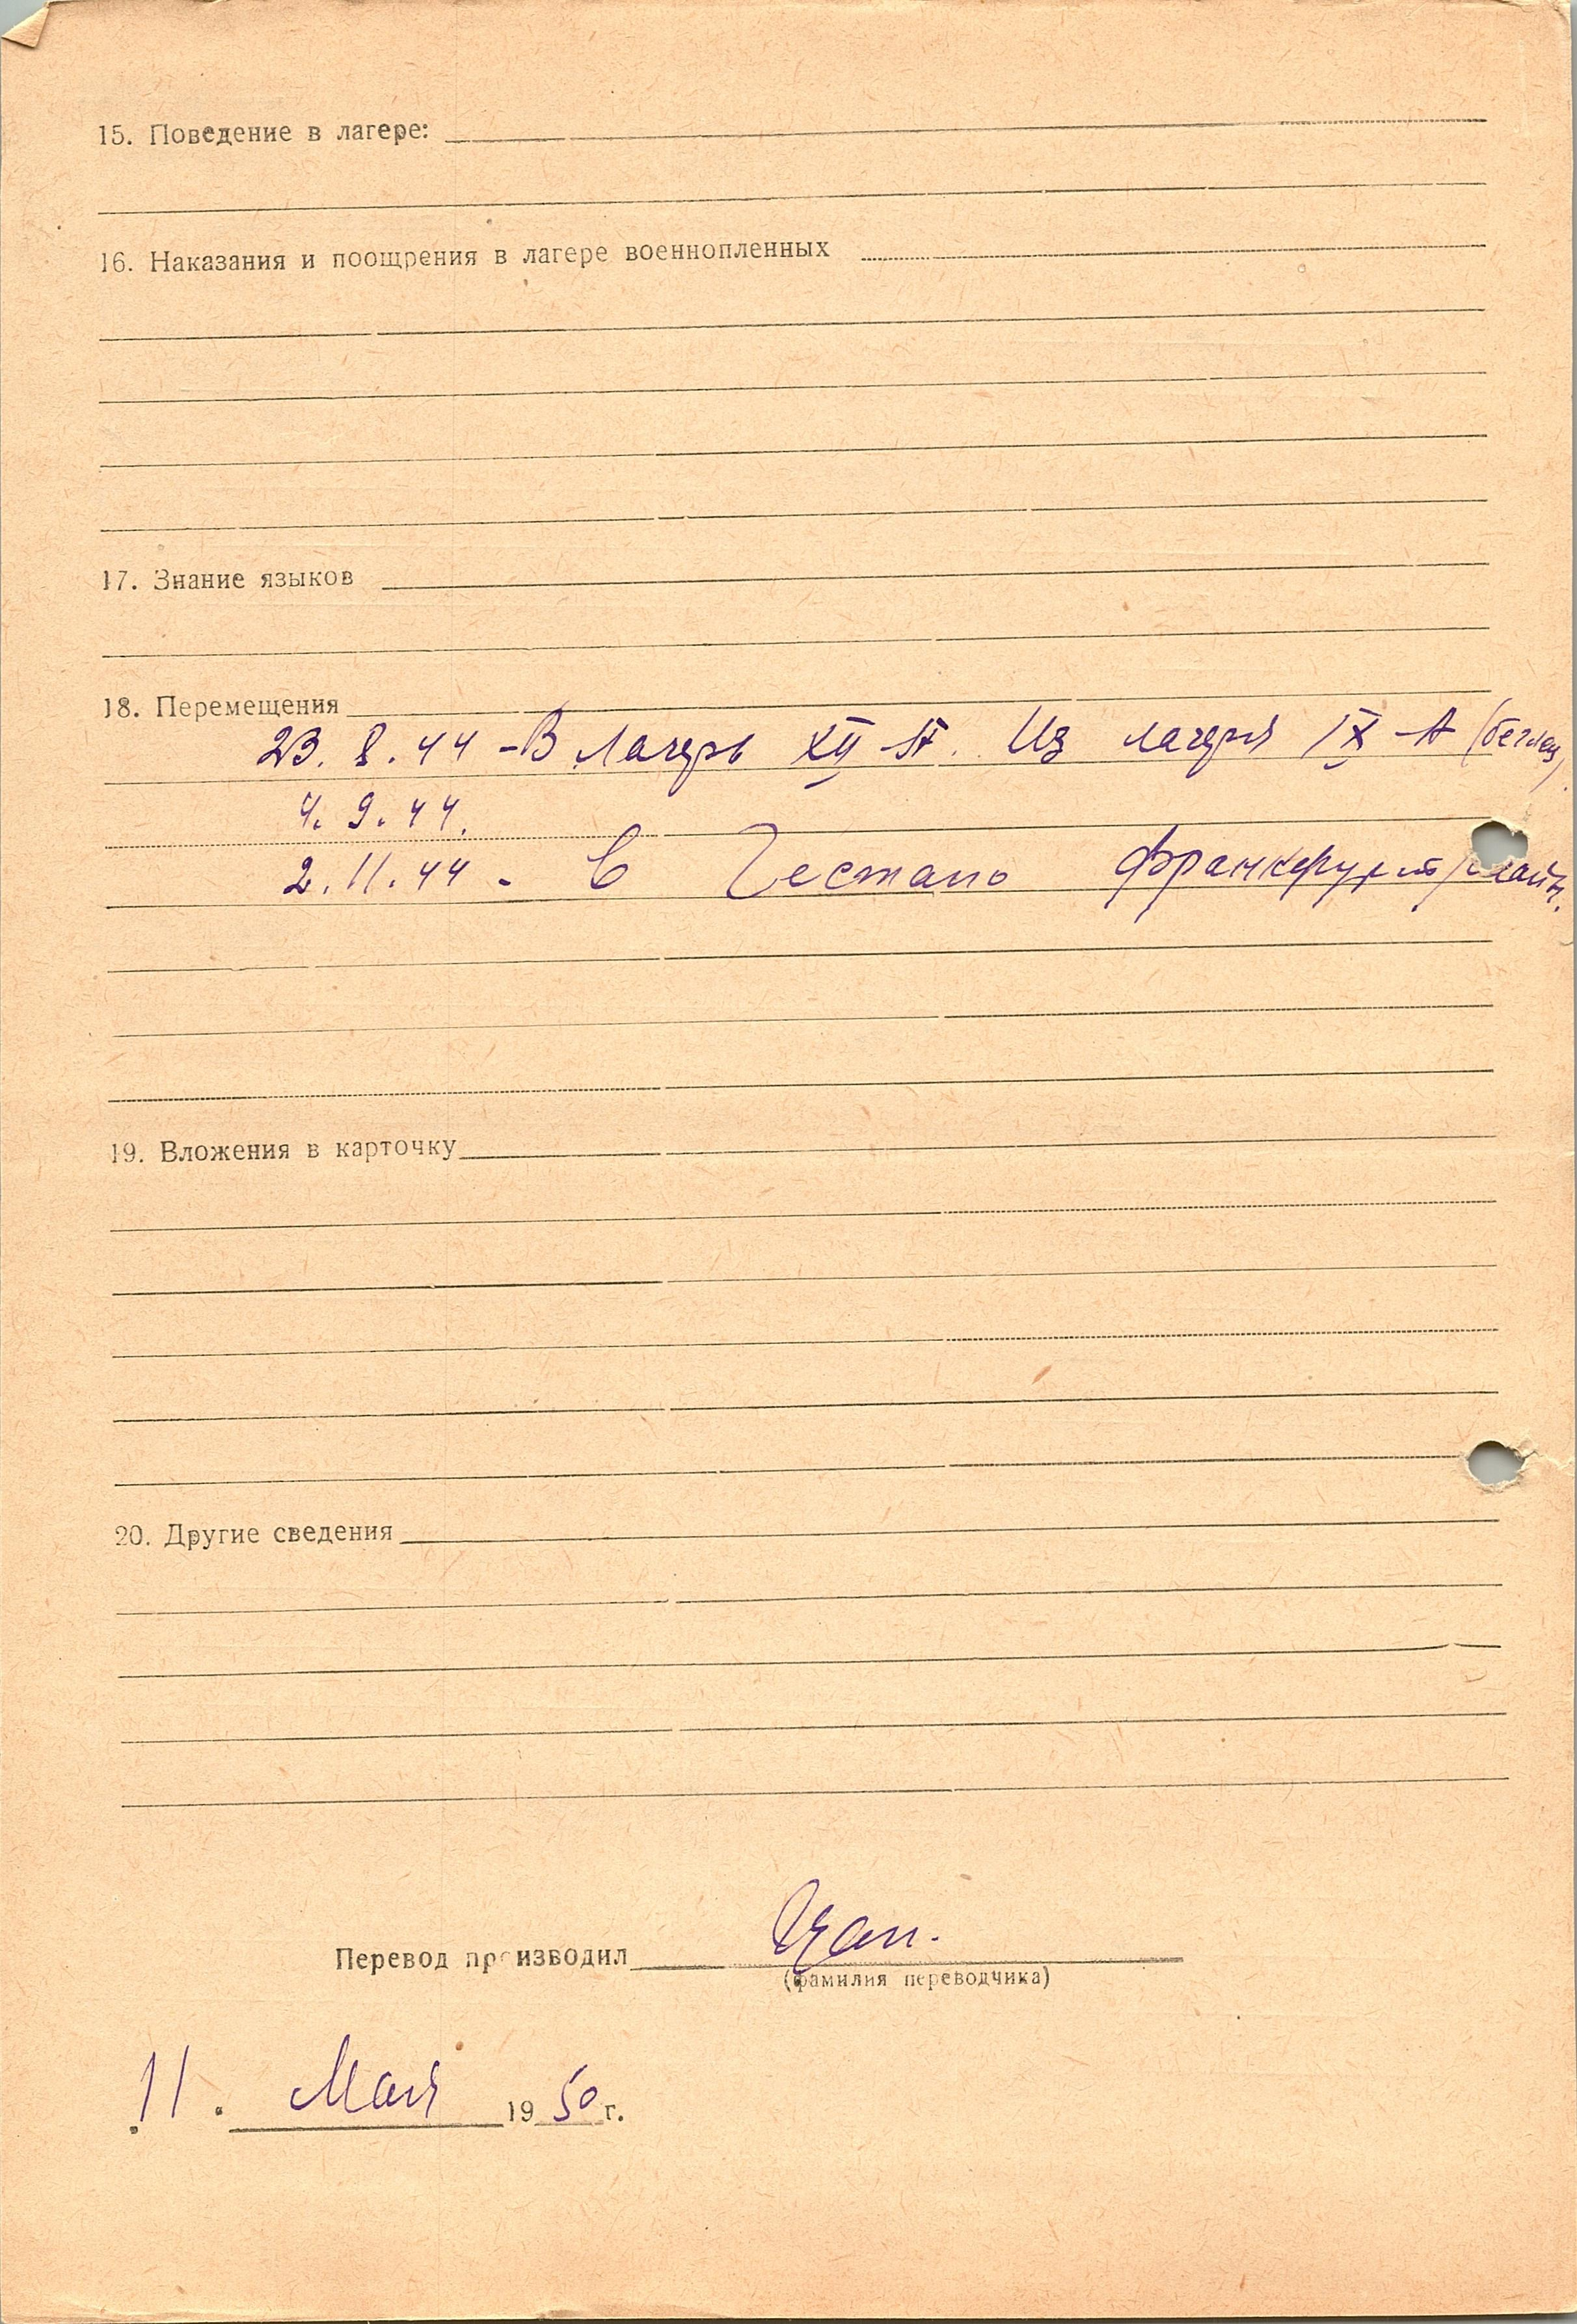 15. Поведение в лагере:
16. Наказания и поощрения в лагере военнопленных
17. Знание языков
18. Перемещения
23. 8. 44 - В лагерь XII-А. Из лагеря IX-А (беглец).
4. 9. 44.
2. 11. 44 - в Гестапо Франкфурт/Майн.
19. Вложения в карточку
20. Другие сведения
Перевод производил
(фамилия переводчика)
11. Мая 1950 г.